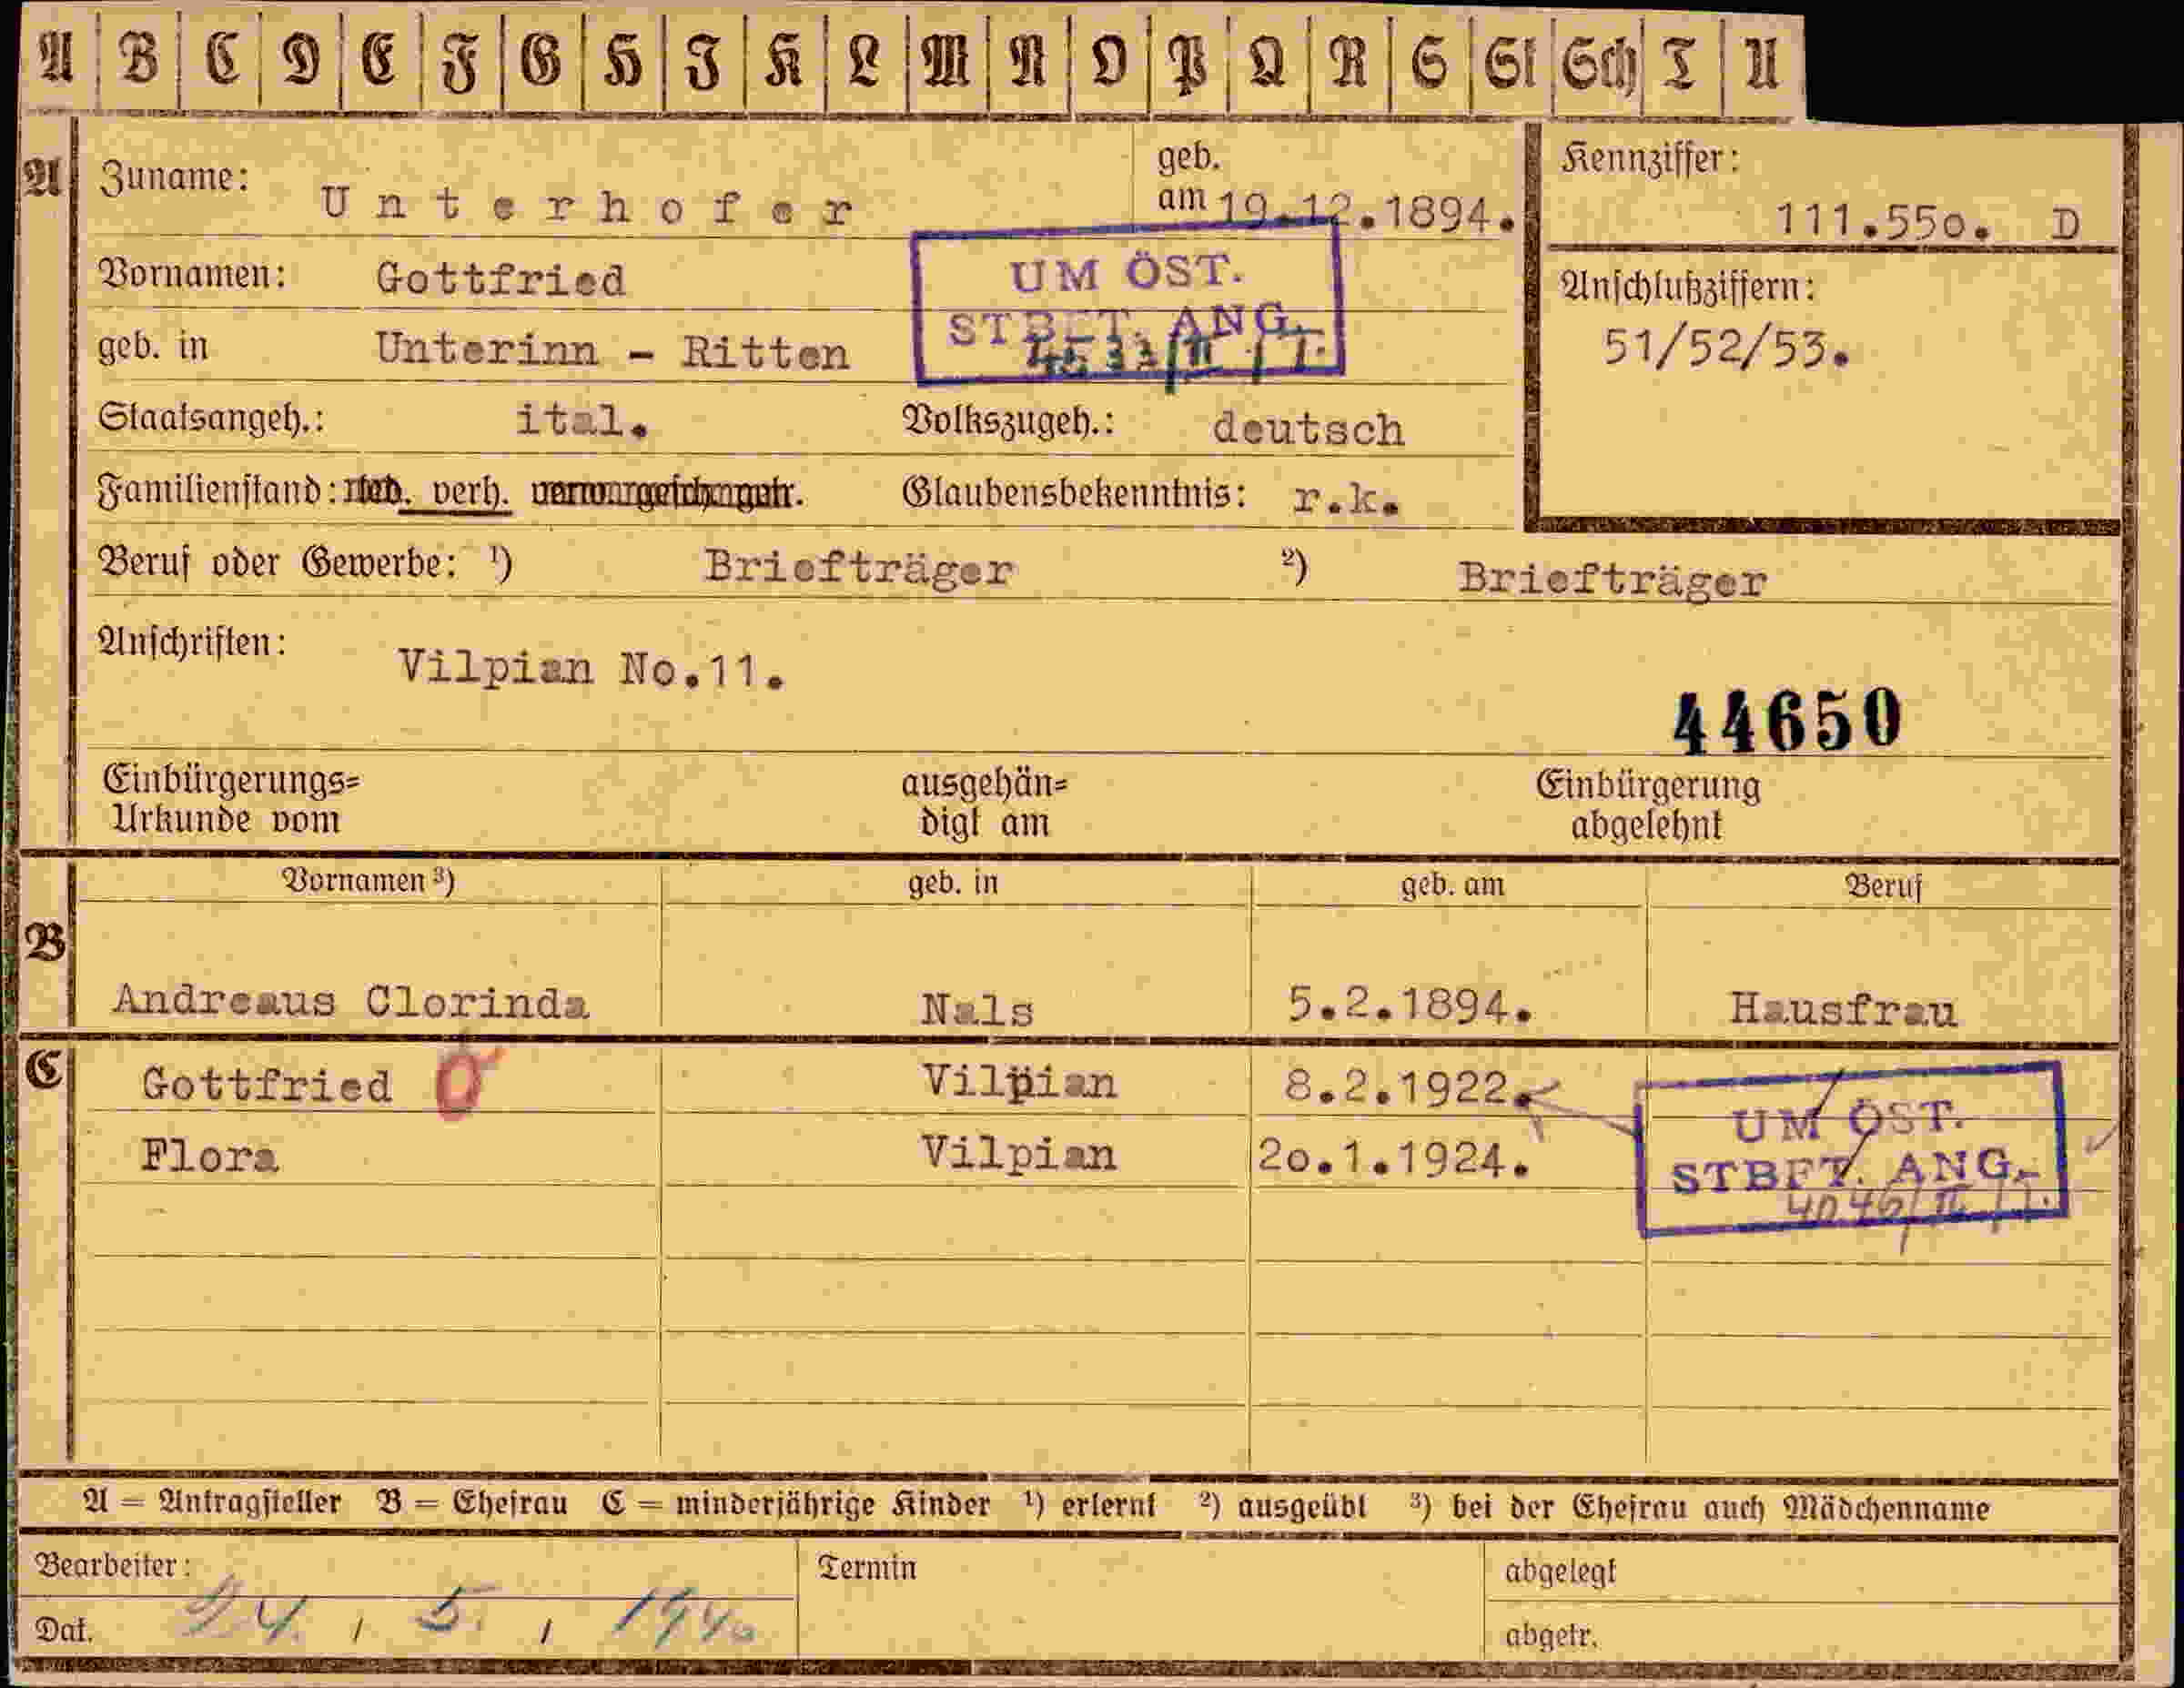 A B C D E F G H I K L M N O P Q R S St Sch T U
A
Zuname: Unterhofer
geb. am 19.12.1894.
Kennziffer: 111.550. D
Vornamen: Gottfried
UM ÖST.
STBFT. ANG.
Anschlußziffern:
51/52/53.
geb. in Unterinn - Ritten
Staatsangeh.: ital.
Volkszugeh.: deutsch
Familienstand: led. verh.
Glaubensbekenntnis: r.k.
Beruf oder Gewerbe: ¹) Briefträger ²) Briefträger
Anschriften: Vilpian No.11.
44650
Einbürgerungs= Urkunde vom
ausgehän= digt am
Einbürgerung abgelehnt
B
Vornamen ³) geb. in geb. am Beruf
Andreaus Clorinda Nals 5.2.1894. Hausfrau
C
Gottfried Vilpian 8.2.1922.
Flora Vilpian 20.1.1924.
UM ÖST.
STBFT. ANG.
A = Antragsteller B = Ehefrau C = minderjährige Kinder ¹) erlernt ²) ausgeübt ³) bei der Ehefrau auch Mädchenname
Bearbeiter:
Termin
abgelegt
Dat. 24. / 5. / 1940
abgetr.